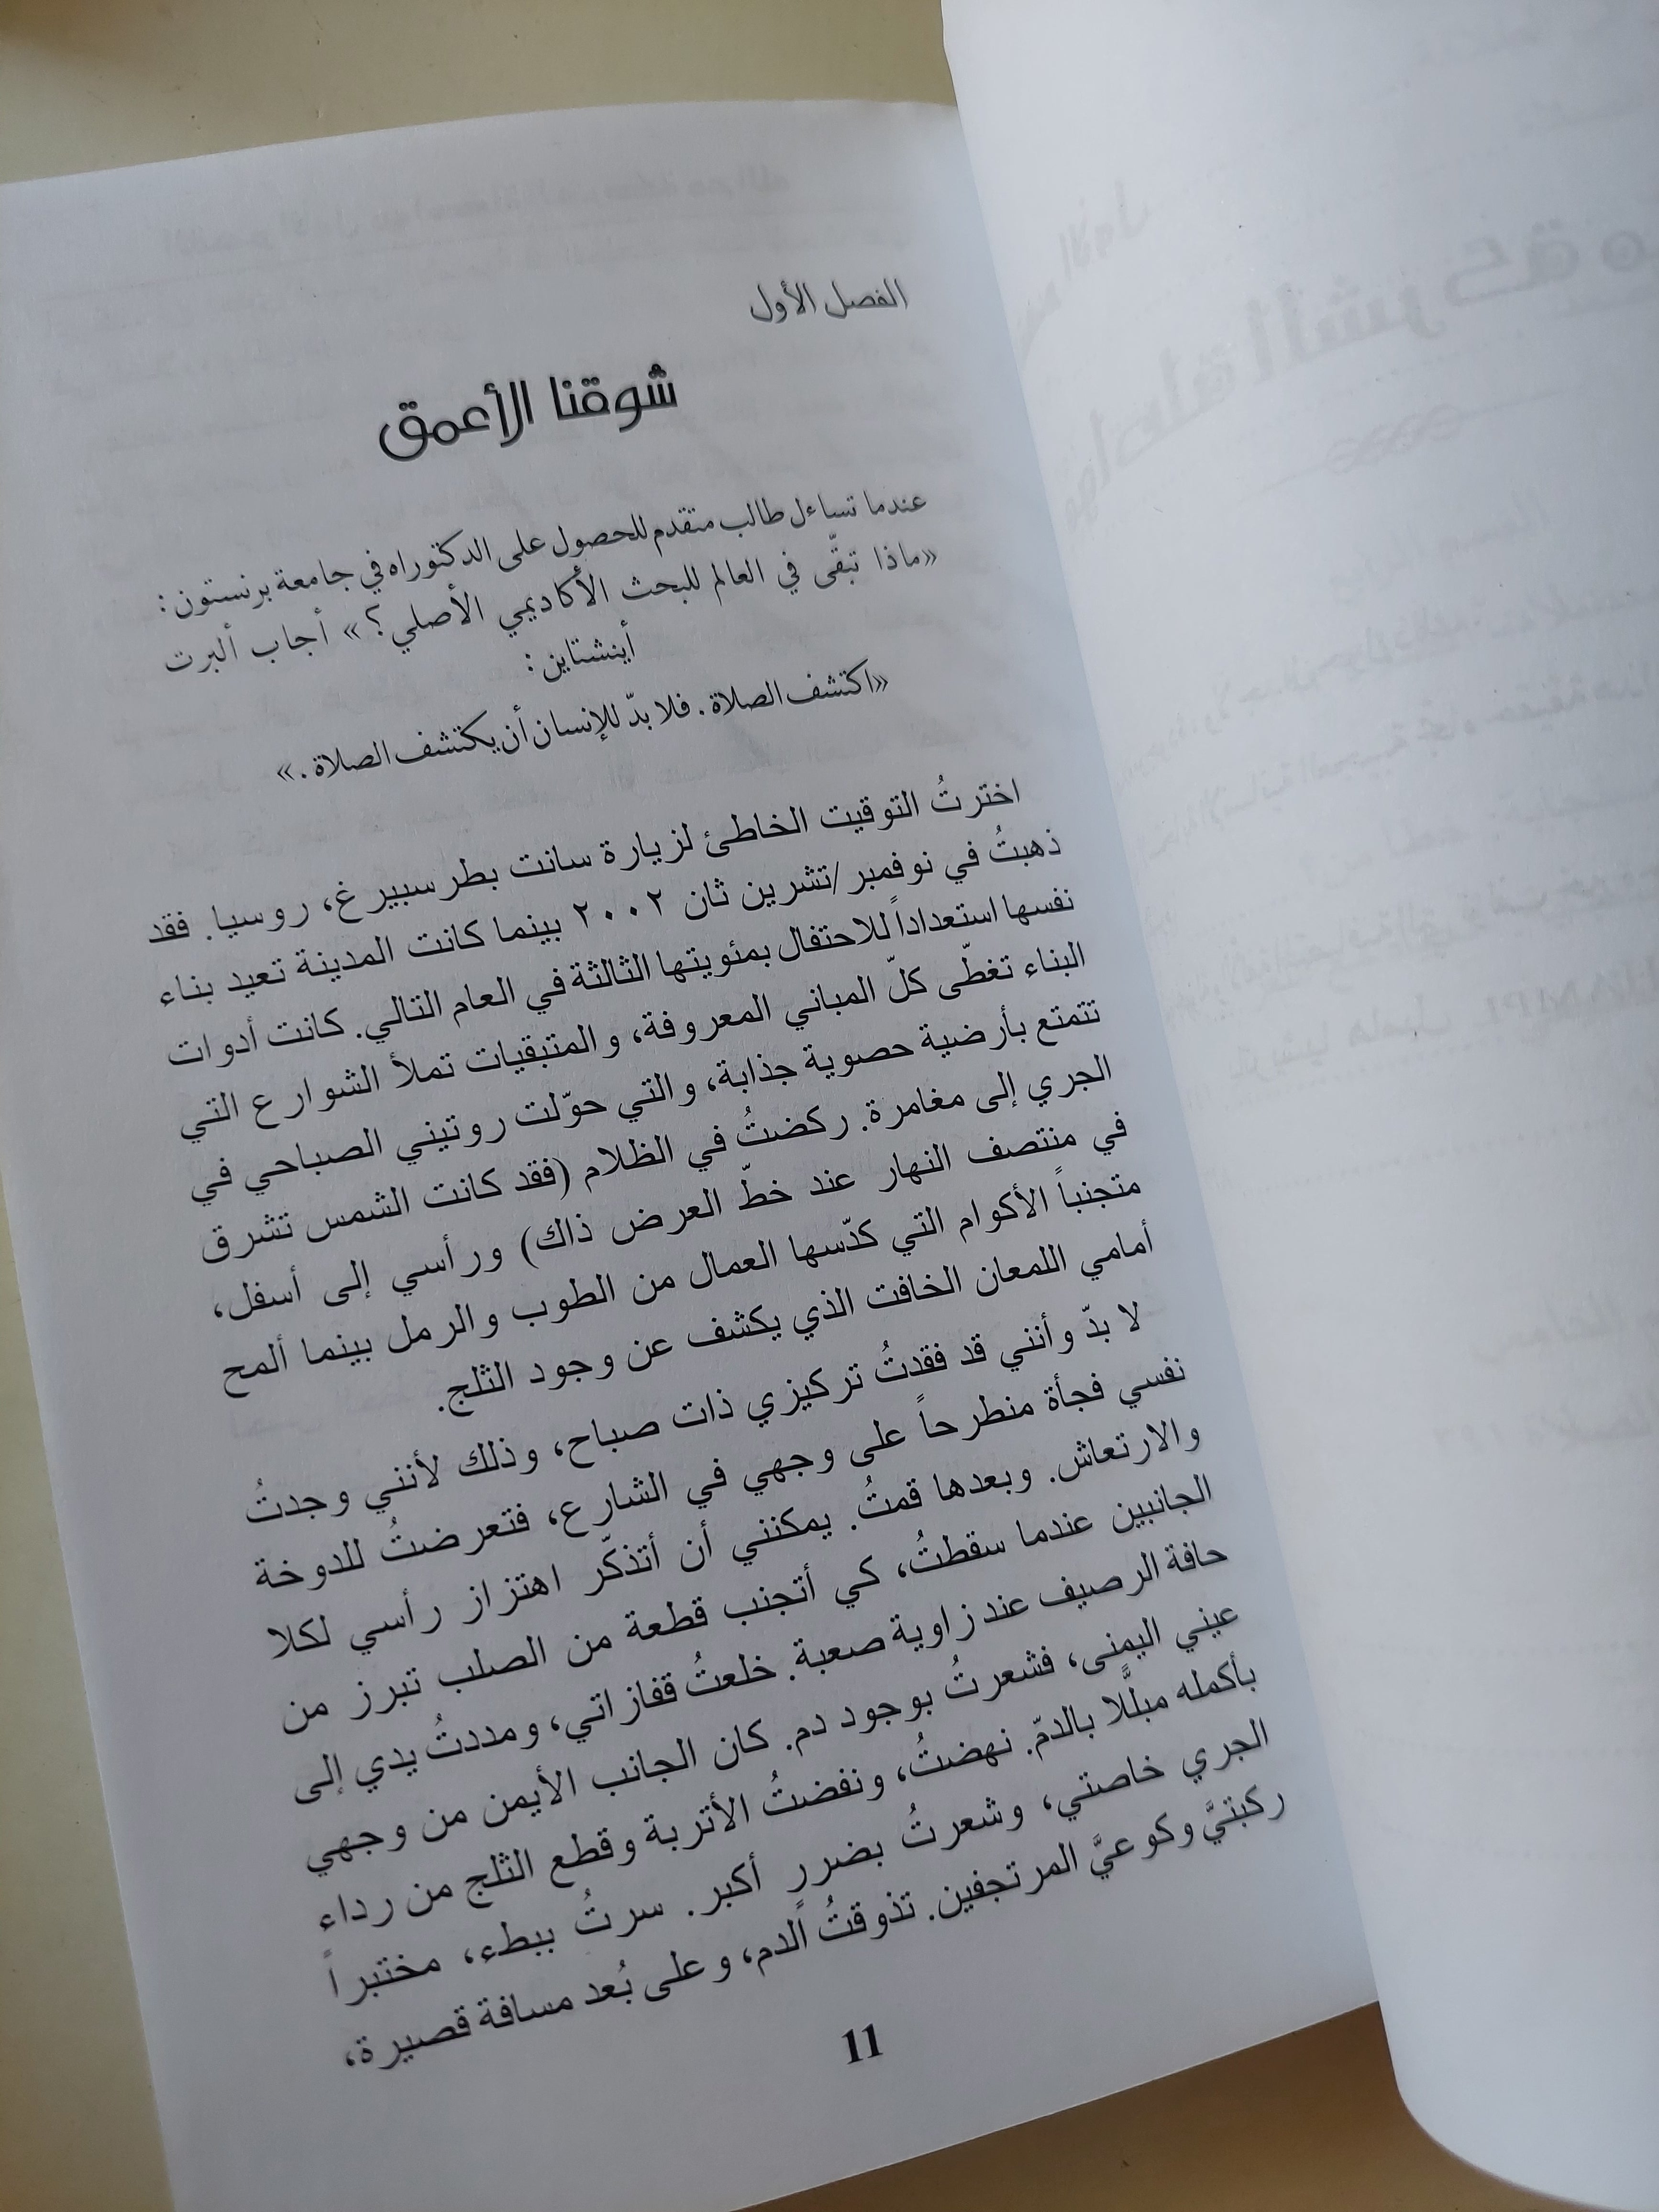 الفصل الأول
شوقنا الأعمق
عندما تساءل طالب متقدم للحصول على الدكتوراه في جامعة برنستون:
«ماذا تبقّى في العالم للبحث الأكاديمي الأصلي؟» أجاب ألبرت
أينشتاين:
«اكتشف الصلاة. فلا بدّ للإنسان أن يكتشف الصلاة.»
اخترتُ التوقيت الخاطئ لزيارة سانت بطرسبيرغ، روسيا. فقد
ذهبتُ في نوفمبر/تشرين ثان ٢٠٠٢ بينما كانت المدينة تعيد بناء
نفسها استعداداً للاحتفال بمئويتها الثالثة في العام التالي. كانت أدوات
البناء تغطّى كلّ المباني المعروفة، والمتبقيات تملأ الشوارع التي
تتمتع بأرضية حصوية جذابة، والتي حوّلت روتيني الصباحي في
الجري إلى مغامرة. ركضتُ في الظلام (فقد كانت الشمس تشرق
في منتصف النهار عند خطّ العرض ذاك) ورأسي إلى أسفل،
متجنباً الأكوام التي كدّسها العمال من الطوب والرمل بينما ألمح
أمامي اللمعان الخافت الذي يكشف عن وجود الثلج.
لا بدّ وأنني قد فقدتُ تركيزي ذات صباح، وذلك لأنني وجدتُ
نفسي فجأة منطرحاً على وجهي في الشارع، فتعرضتُ للدوخة
والارتعاش. وبعدها قمتُ. يمكنني أن أتذكّر اهتزاز رأسي لكلا
الجانبين عندما سقطتُ، كي أتجنب قطعة من الصلب تبرز من
حافة الرصيف عند زاوية صعبة. خلعتُ قفازاتي، ومددتُ يدي إلى
عيني اليمنى، فشعرتُ بوجود دم. كان الجانب الأيمن من وجهي
بأكمله مبلَّلا بالدمّ. نهضتُ، ونفضتُ الأتربة وقطع الثلج من رداء
الجري خاصتي، وشعرتُ بضررٍ أكبر. سرتُ ببطء، مختبراً
ركبتيَّ وكوعيَّ المرتجفين. تذوقتُ الدم، وعلى بُعد مسافة قصيرة،
11